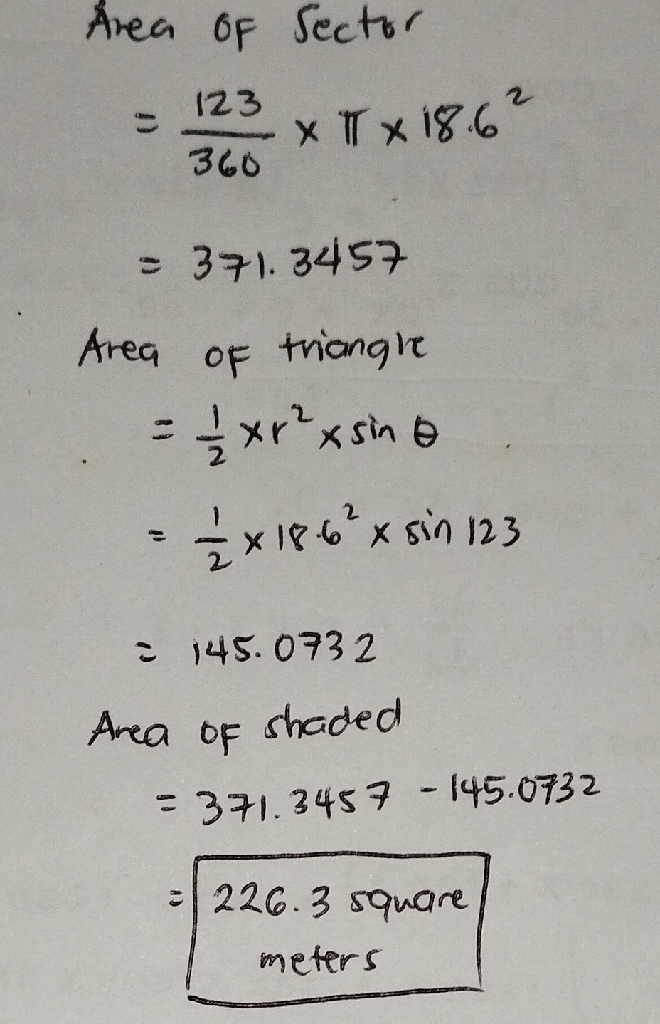 Area of Sector
= 123/360 x π x 18.6²
= 371.3457
Area of triangle
= 1/2 x r² x sin θ
= 1/2 x 18.6² x sin 123
= 145.0732
Area of shaded
= 371.3457 - 145.0732
= 226.3 square
meters